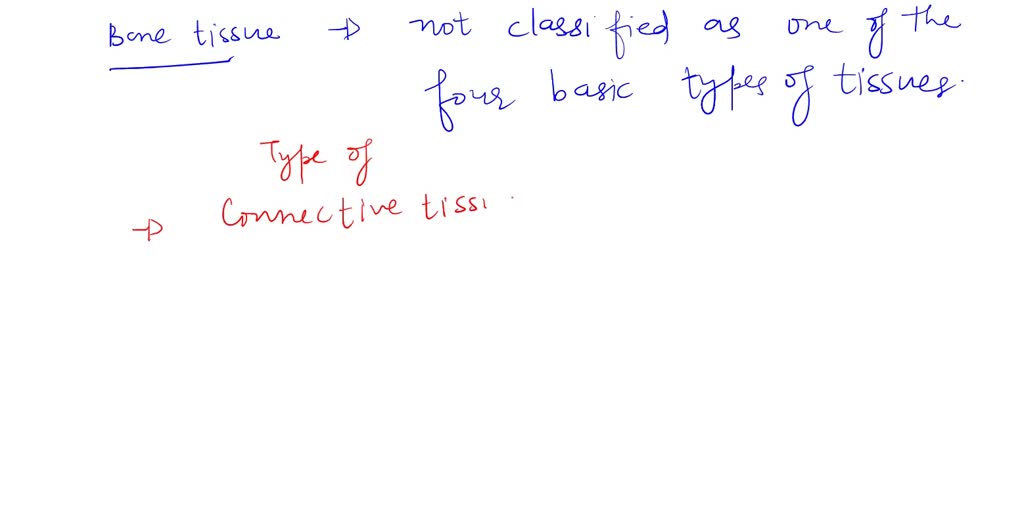 Bone tissue → not classified as one of the
four basic types of tissues.
Type of
→ Connective tissu